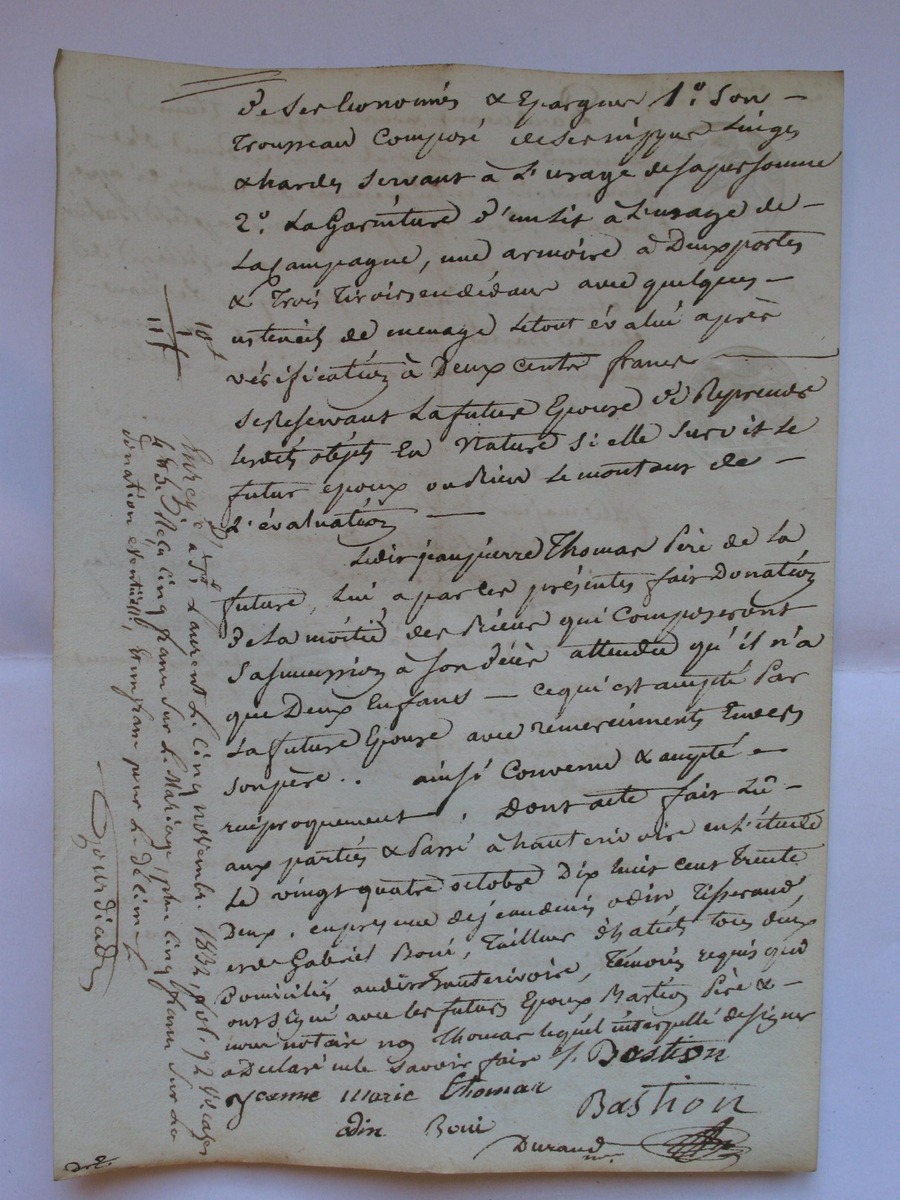 de ses Economies & Epargnes 1.º Son
Trousseau Composé de ses nippes Linges
& hardes servant à l'usage de sa personne
2.º La Garniture d'un Lit à L'usage de
La Campagne, une armoire à Deux portes
& Trois Tiroirs en dedans avec quelques
ustenciles de menage Le tout évalué après
vérification à Deux Cents francs
Se Reservant La future Epouse de Reprendre
Lesdits objets En Nature si elle survit Le
futur epoux ou Bien Le montant de
L'évaluation
Ledit jean pierre Thomas Père de La
future, Lui a par Ces présentes fait Donation
De La moitié des Biens qui Composeront
Sa succession à Son décès attendu qu'il n'a
que Deux Enfants — ce qui est accepté Par
La future Epouse avec remerciments Envers
son père .. ainsi Convenu & accepté
réciproquement, Dont acte fait Lu
aux parties & Passé à hauterivoire en L'étude
Le vingt quatre octobre Dix huit cent trente
Deux, en presence de jean denis odin, Tisserand,
et de Gabriel Boni, Tailleur d'habits tous deux
Domiciliés audit hauterivoire, Témoins requis qui
ont signé avec les futurs Epoux Bastion Père &
nous notaire non Thomas lequel interpellé de signer
a Déclaré ne le savoir faire /. Bastion
jeanne marie thomas Bastion
odin Boni
Durand
10f
1
11f
Enreg.é à S.t Laurent Le Cinq novembre 1832, fol. 92 V.º Cases
4 & 5. Reçu Cinq francs sur Le Mariage, plus Cinq francs sur La
donation éventuelle, & un franc pour Le décime